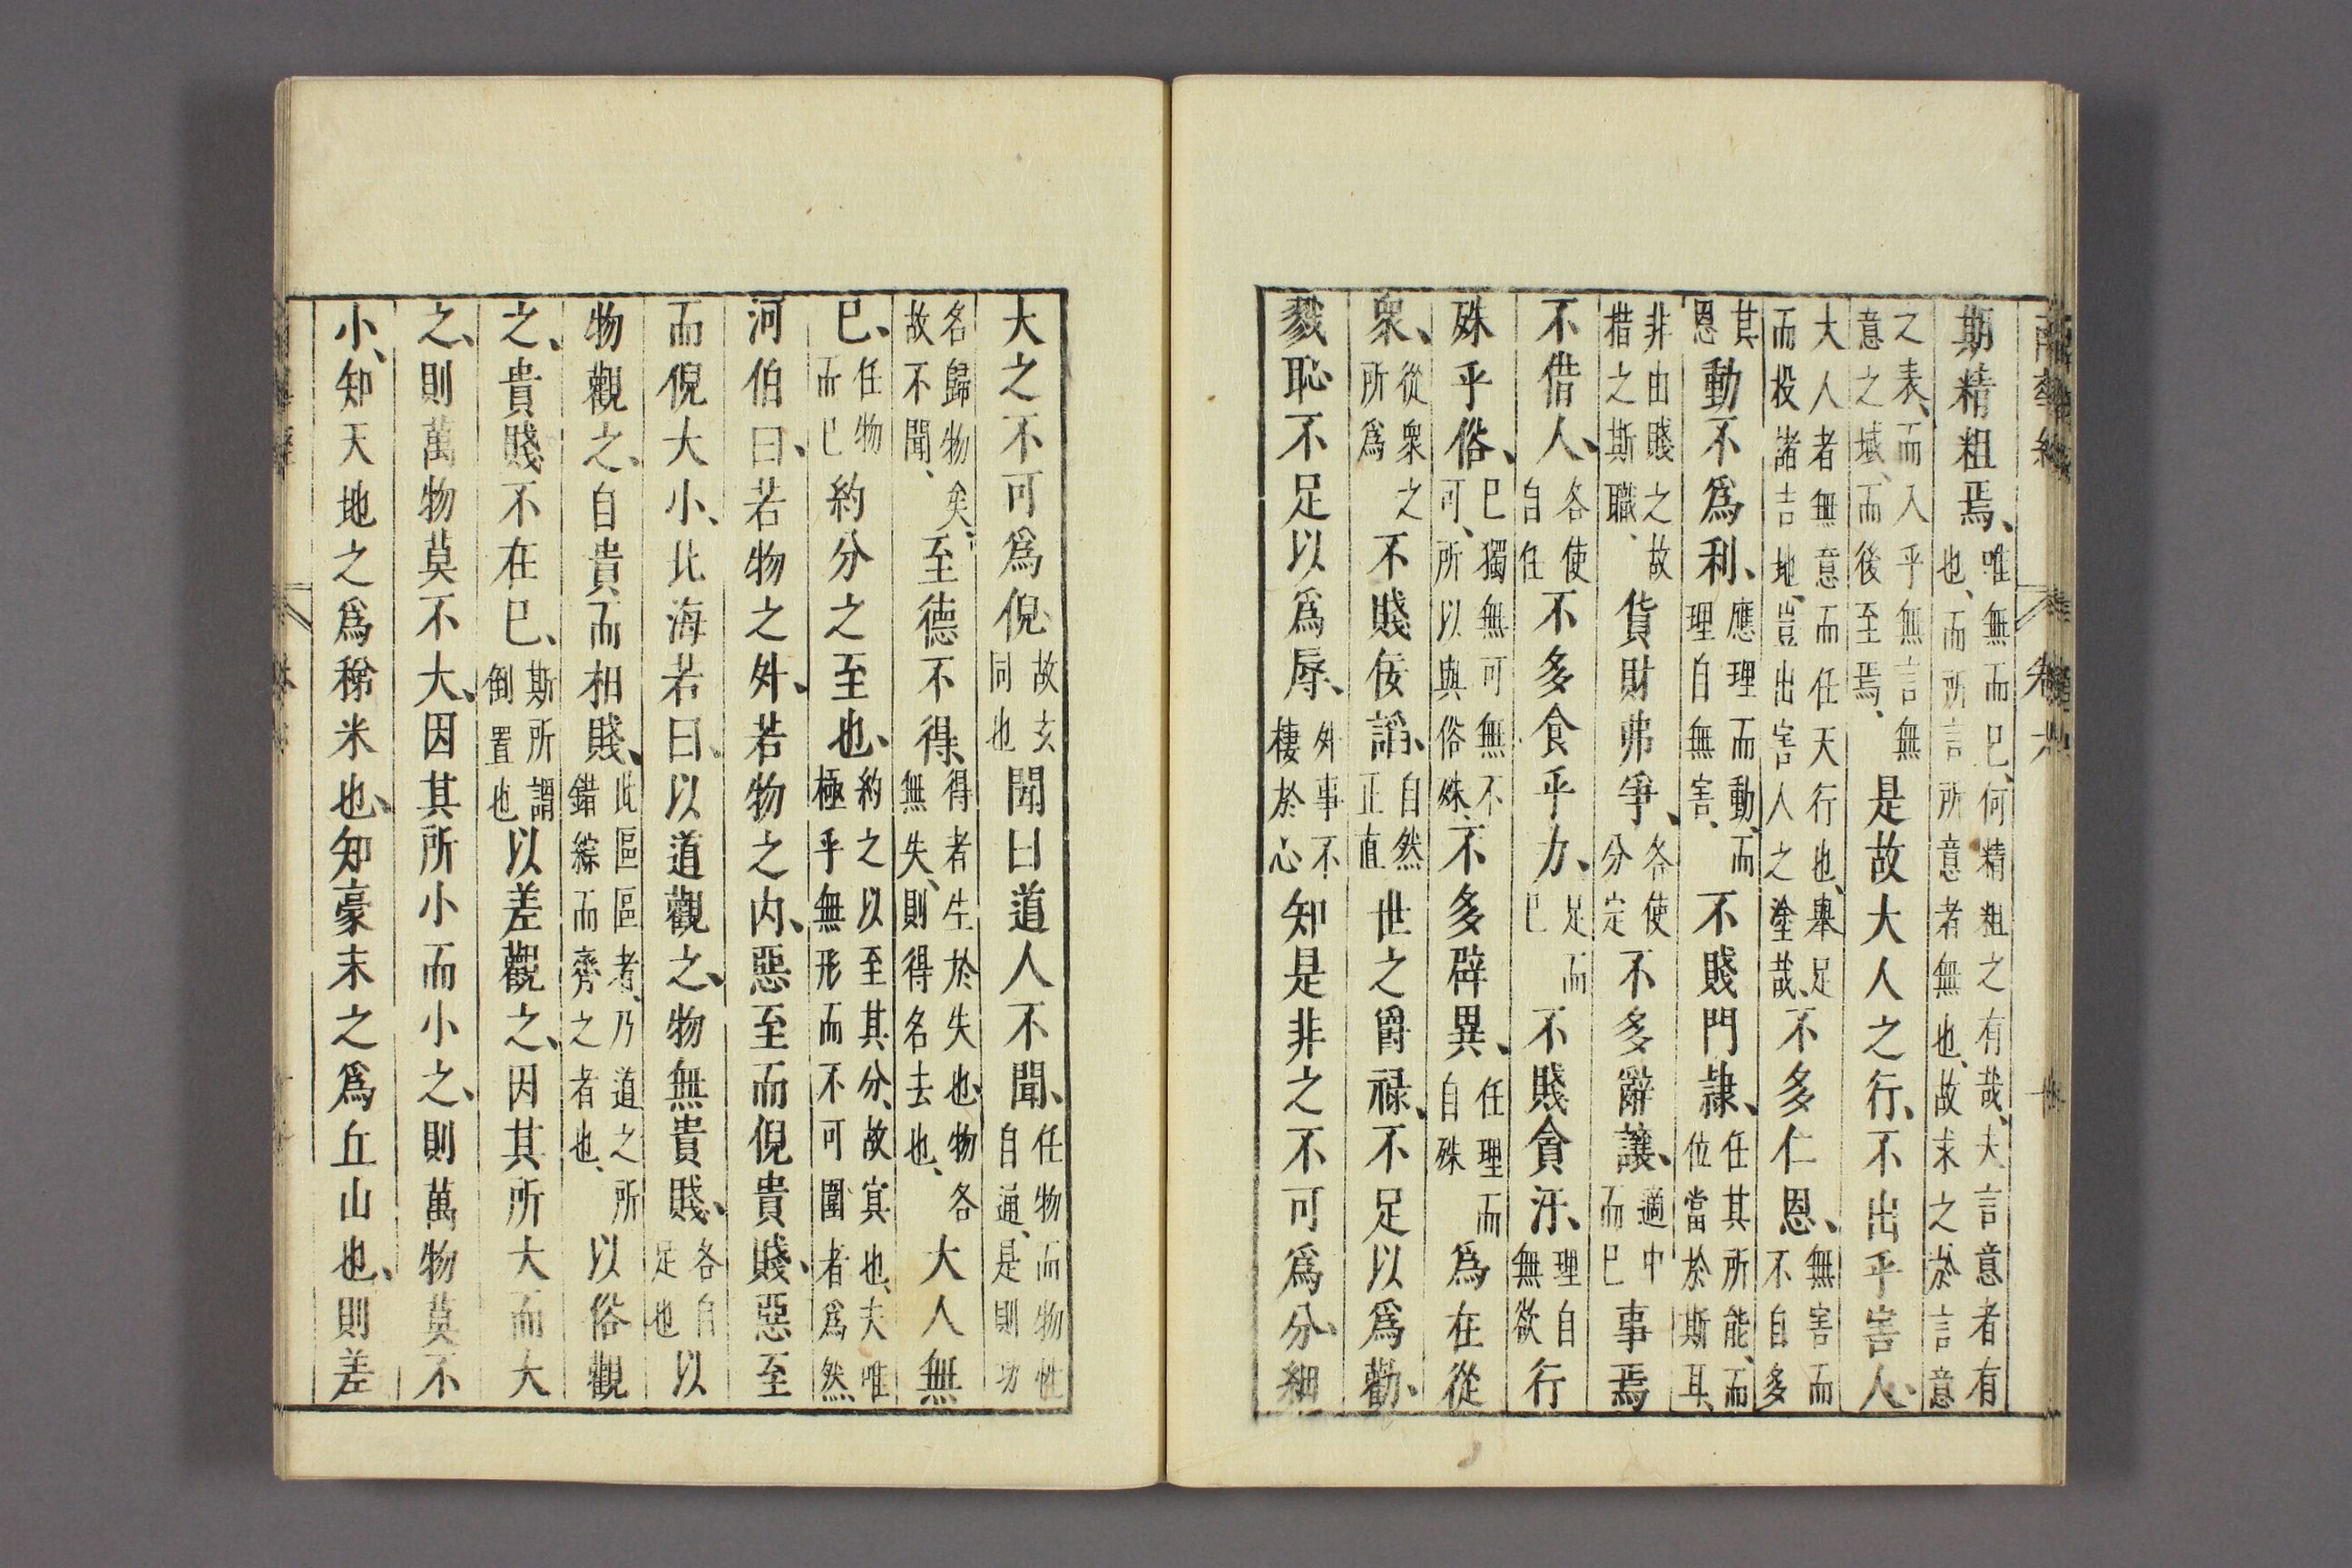 期精粗焉、唯無而已、何精粗之有哉、夫言意者有也、而所言所意者無也、故求之於言意
之表、而入乎無言無意之域、而後至焉、是故大人之行、不出乎害人、
大人者無意而任天行也、舉足而投諸吉地、豈出害人之塗哉、不多仁恩、無害而不自多
其恩動不爲利、應理而動、而理自無害、不賤門隷、任其所能、而位當於斯耳、
非由賤之故措之斯職、貨財弗爭、各使分定不多辭讓、適中而已事焉
不借人、各使自任不多食乎力、足而已不賤貪汙、理自無欲行
殊乎俗、已獨無可無不可、所以與俗殊、不多辟異、任理而自殊爲在從
衆、從衆之所爲不賤佞諂、自然正直世之爵禄、不足以爲勸、
戮恥不足以爲辱、外事不棲於心知是非之不可爲分、細
大之不可爲倪、故玄同也聞曰道人不聞、任物而物性自通、是則功
名歸物矣、故不聞、至德不得、得者生於失也、物各無失、則得名去也、大人無
已、任物而已約分之至也、約之以至其分、故冥也、夫唯極乎無形而不可圍者爲然
河伯曰、若物之外、若物之内、惡至而倪貴賤、惡至
而倪大小、北海若曰、以道觀之、物無貴賤、各自足也以
物觀之、自貴而相賤、此區區者、乃道之所錯綜而齊之者也、以俗觀
之、貴賤不在已、斯所謂倒置也以差觀之、因其所大而大
之、則萬物莫不大、因其所小而小之、則萬物莫不
小、知天地之爲稊米也、知豪末之爲丘山也、則差